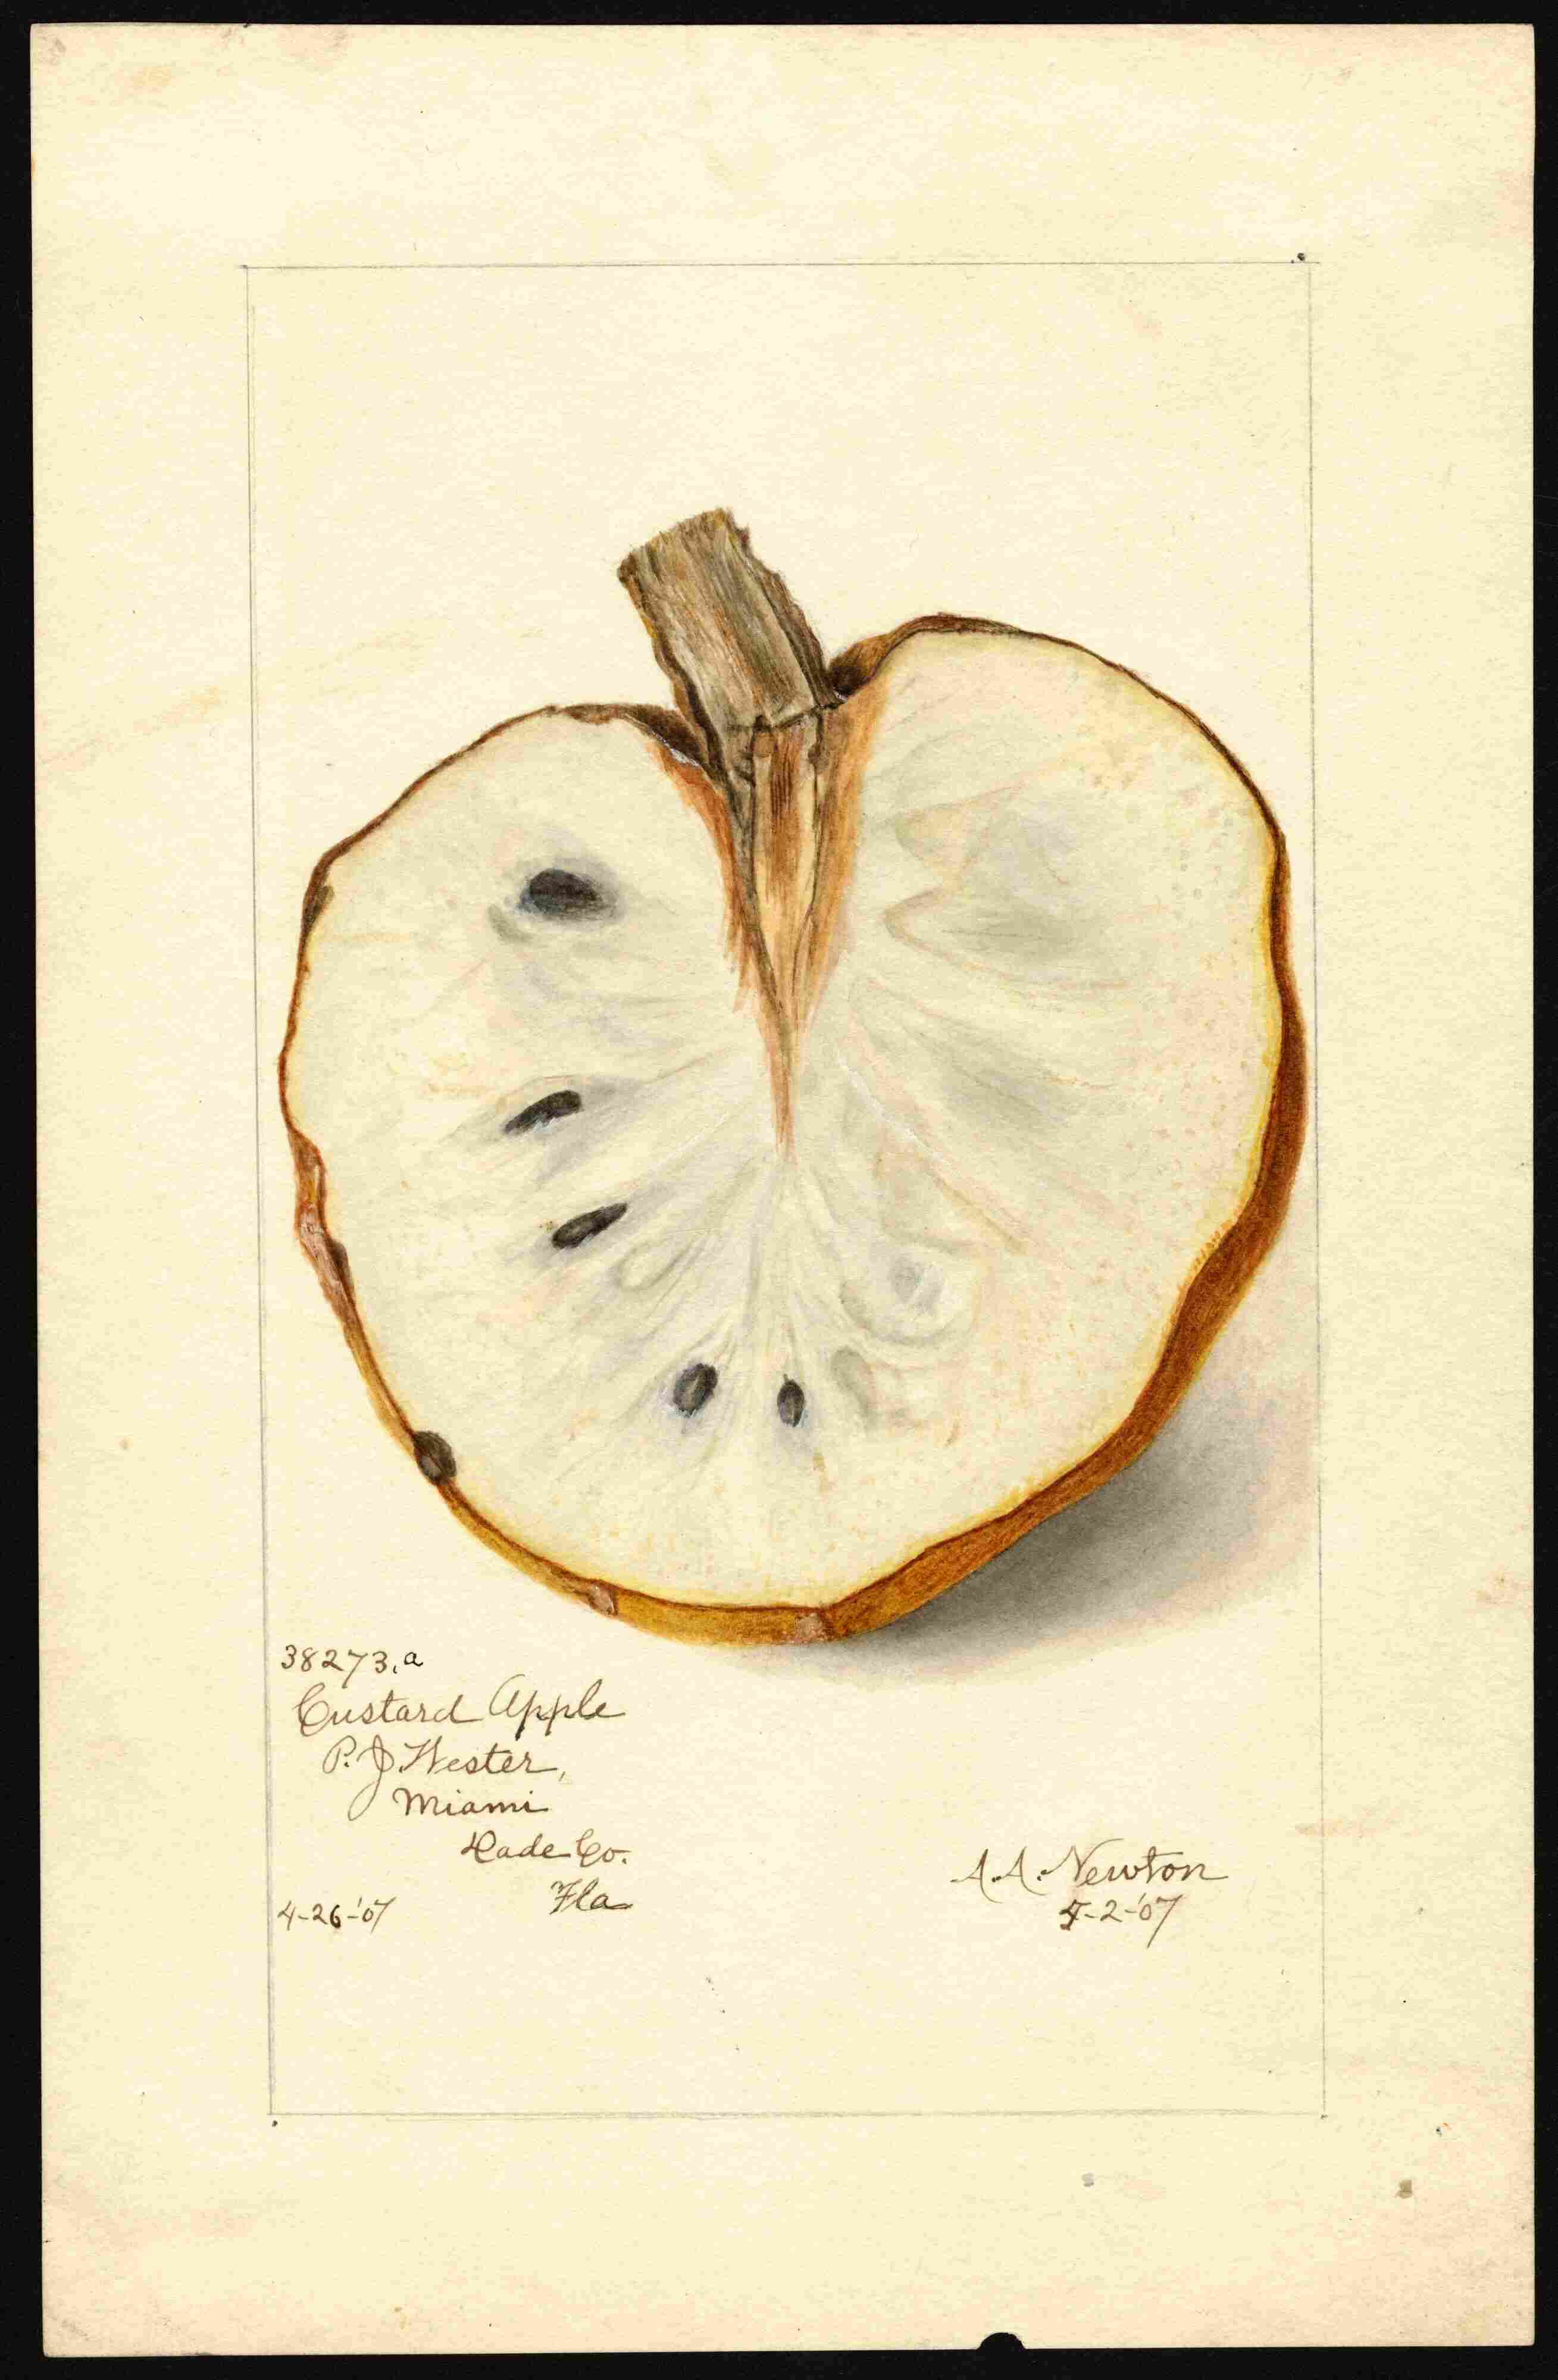 38273.a
Custard Apple
P. J. Wester,
Miami
Dade Co.
Fla
4-26-'07
A. A. Newton
5-2-'07